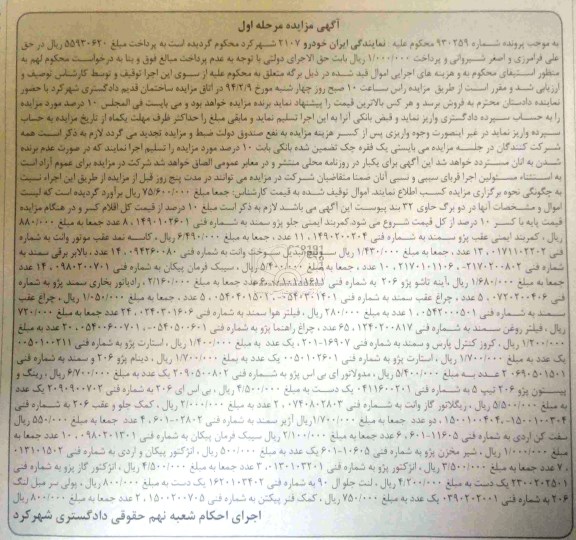 آگهی مزایده مرحله اول
به موجب پرونده شماره ۹۳۰۲۵۹ محکوم علیه : نمایندگی ایران خودرو ۲۱۰۷ شهرکرد محکوم گردیده است به پرداخت مبلغ ۵۵۹۳۰۶۲۰ ریال در حق
علی فرامرزی و اصغر شیروانی و پرداخت ۱/۰۰۰/۰۰۰ ریال بابت حق الاجرای دولتی با توجه به عدم پرداخت مبالغ فوق و بنا به درخواست محکوم لهم به
منظور استیفای محکوم به و هزینه های اجرایی اموال قید شده در ذیل برگه متعلق به محکوم علیه از سوی این اجرا توقیف و توسط کارشناس توصیف و
ارزیابی شد و مقرر است از طریق مزایده راس ساعت ۱۰ صبح روز چهار شنبه مورخ ۹۴/۲/۹ در اتاق مزایده ساختمان قدیم دادگستری شهرکرد با حضور
نماینده دادستان محترم به فروش برسد و هر کس بالاترین قیمت را پیشنهاد نماید برنده مزایده خواهد بود و می بایست فی المجلس ۱۰ درصد مورد مزایده
را به حساب سپرده دادگستری واریز نماید و فیش بانکی آنرا به این اجرا تسلیم نماید و مابقی مبلغ را حداکثر ظرف مهلت یکماه از تاریخ مزایده به حساب
سپرده واریز نماید در غیر اینصورت وجوه واریزی پس از کسر هزینه مزایده به نفع صندوق دولت ضبط و مزایده تجدید می گردد لازم به ذکر است همه
شرکت کنندگان در جلسه مزایده می بایستی یک فقره چک تضمین شده بانکی بابت ۱۰ درصد مورد مزایده را تسلیم اجرا نمایند که در صورت عدم برنده
شدن به آنان مسترد خواهد شد این آگهی برای یکبار در روزنامه محلی منتشر و در معابر عمومی الصاق خواهد شد شرکت در مزایده برای عموم آزاد است
به استثناء مسئولین اجرا قربای سببی و نسبی آنان ضمنا متقاضیان شرکت در مزایده می توانند در مدت پنج روز قبل از مزایده از طریق این اجراء نسبت
به چگونگی نحوه برگزاری مزایده کسب اطلاع نمایند. اموال توقیف شده به قیمت کارشناس: جمعا مبلغ ۷۵/۶۰۰/۰۰۰ ریال برآورد گردیده است که لیست
اموال و مشخصات آنها در دو برگ حاوی ۳۲ بند پیوست این آگهی می باشد لازم به ذکر است مبلغ ۱۰ درصد از قیمت کل اقلام کسر و در هنگام مزایده
قیمت پایه با کسر ۱۰ درصد از کل قیمت شروع می شود. کمربند ایمنی جلو پژو سمند به شماره فنی ۱۴۹۰۱۰۲۶۰۱ ، ۸ عدد جمعا به مبلغ ۸۸۰/۰۰۰
ریال ، کمربند ایمنی عقب پژو سمند به شماره فنی ۱۴۹۰۲۰۰۲۰۴ ، ۱۱ عدد ، جمعا به مبلغ ۶/۴۹۰/۰۰۰ ریال ، کاسه نمد عقب موتور وانت به شماره
فنی ۰۱۷۱۱۰۲۲۰۲ ، ۱۳ عدد ، جمعا به مبلغ ۱/۴۳۰/۰۰۰ ریال تبدیل سوخت وانت به شماره فنی ۰۹۴۲۶۰۰۸۰ ، ۱۴ عدد ، بالابر برقی سمند به
شماره فنی ۲۱۷۰۲۰۰۸۰۲ - ۲۱۷۰۱۰۱۱۰۶ ، ۱۰ عدد ، جمعا به مبلغ ۵/۴۰۰/۰۰۰ ریال ، سیبک فرمان پیکان به شماره فنی ۰۹۸۰۲۰۰۷۰۱ ، ۱۴ عدد
جمعا به مبلغ ۱/۶۸۰/۰۰۰ ریال ، آینه تاشو پژو ۲۰۶ به شماره فنی عدد ، جمعا به مبلغ ۲/۱۶۰/۰۰۰ ریال ، رادیاتور بخاری سمند به شماره
فنی ۰۷۲۰۲۰۰۴۰۶ ، ۵ عدد ، چراغ عقب سمند به شماره فنی ۰۵۴۰۳۰۱۴۰۱ - ۰۵۴۰۴۰۱۵۰۱ ، ۵ عدد ، جمعا به مبلغ ۱/۰۵۰/۰۰۰ ریال ، چراغ عقب
سمند به شماره فنی ۰۵۴۲۰۰۰۵۰۱ ، ۱ عدد ، جمعا به مبلغ ۲۸۰/۰۰۰ ریال ، فیلتر هوا سمند به شماره فنی ۰۲۴۰۳۰۱۶۰۶ ، ۲۴ عدد جمعا به مبلغ ۷۲۰/۰۰۰
ریال ، فیلتر روغن سمند به شماره فنی ۱۲۴۲۰۰۸۱۷ ، ۶۵ عدد ، چراغ راهنما پژو به شماره فنی ۰۵۴۰۵۰۰۶۰۱ - ۰۵۴۰۰۶۰۰۷۰۱ ، ۲۰ عدد به مبلغ
۱/۲۰۰/۰۰۰ ریال ، کروز کنترل پارس و سمند به شماره فنی ۱۶۹۰۷-۲۰۱ ، یک عدد به مبلغ ۱/۴۰۰/۰۰۰ ریال ، استارت پژو به شماره فنی ۰۰۵۰۱۰۰۲۱۱
یک عدد به مبلغ ۱/۷۰۰/۰۰۰ ریال ، استارت پژو به شماره فنی ۰۰۵۰۱۰۲۶۰۱ یک عدد به مبلغ ۱/۷۰۰/۰۰۰ ریال ، دینام پژو ۲۰۶ و سمند به شماره فنی
۰۶۹۰۵۰۱۵۰۱ ۳ عدد به مبلغ ۵/۴۰۰/۰۰۰ ریال ، مدولاتور ای بی اس پژو به شماره فنی ۲۰۹۰۵۰۰۸۰۲ یک عدد به مبلغ ۶/۷۰۰/۰۰۰ ریال ، رینگ و
پیستون پژو ۲۰۶ تیپ ۵ به شماره فنی ۰۴۱۱۶۰۰۲۰۱ یک دست به مبلغ ۴/۵۰۰/۰۰۰ ریال ، بی اس ای ۲۰۶ به شماره فنی ۲۰۹۰۹۰۰۷۰۲ یک عدد
به مبلغ ۵/۵۰۰/۰۰۰ ریال ، ریگلاتور گاز وانت به شماره فنی ۰۷۴۰۸۰۲۸۰۳ ، ۲ عدد به مبلغ ۲/۰۰۰/۰۰۰ ریال ، کمک جلو و عقب ۲۰۶ به شماره فنی
۱۵۰۰۱۰۰۳۰۴-۱۵۰۰۱۰۰۴۰۴ ، دو عدد جمعا به مبلغ ۱/۷۰۰/۰۰۰ ریال آژیر سمند به شماره فنی ۰۲۸۰۲-۶۰۱ ، ۴ عدد جمعا به مبلغ ۵۵۰/۰۰۰ ریال
سفت کن اردی به شماره فنی ۱۱۶۰۵-۶۰۱ ، ۶ عدد جمعا به مبلغ ۲/۱۰۰/۰۰۰ ریال سیبک فرمان پیکان به شماره فنی ۰۹۸۰۲۰۱۳۰۱ ، ۱۰ عدد جمعا به
مبلغ ۱/۰۰۰/۰۰۰ ریال ، شیر مخزن پژو به شماره فنی ۱۰۶۰۵-۶۰۱ یک عدد به مبلغ ۵۰۰/۰۰۰ ریال ، انژکتور پیکان و اردی به شماره فنی ۰۱۳۱۰۱۵۰۲
، ۷ عدد جمعا به مبلغ ۳/۵۰۰/۰۰۰ ریال ، انژکتور پژو به شماره فنی ۰۱۳۰۱۰۳۲۰۱ ، ۳ عدد جمعا به مبلغ ۴/۵۰۰/۰۰۰ ریال ، انژکتور گاز پژو به شماره فنی
۲۳۰۰۲۰۲۵۰۱ یک دست به مبلغ ۴/۲۰۰/۰۰۰ ریال ، لنت جلو ال ۹۰ به شماره فنی ۱۶۲۰۱۰۳۴۰۲ یک دست به مبلغ ۸۰۰/۰۰۰ ریال ، پولی سر میل لنگ
۲۰۶ به شماره فنی ۰۳۹۰۲۰۲۰۰۱ یک عدد به مبلغ ۷۵۰/۰۰۰ ریال ، کمک فنر پیکتن به شماره فنی ۱۵۰۰۲۰۰۷۰۵ ، ۲ عدد جمعا به مبلغ ۸۰۰/۰۰۰ ریال
اجرای احکام شعبه نهم حقوقی دادگستری شهرکرد